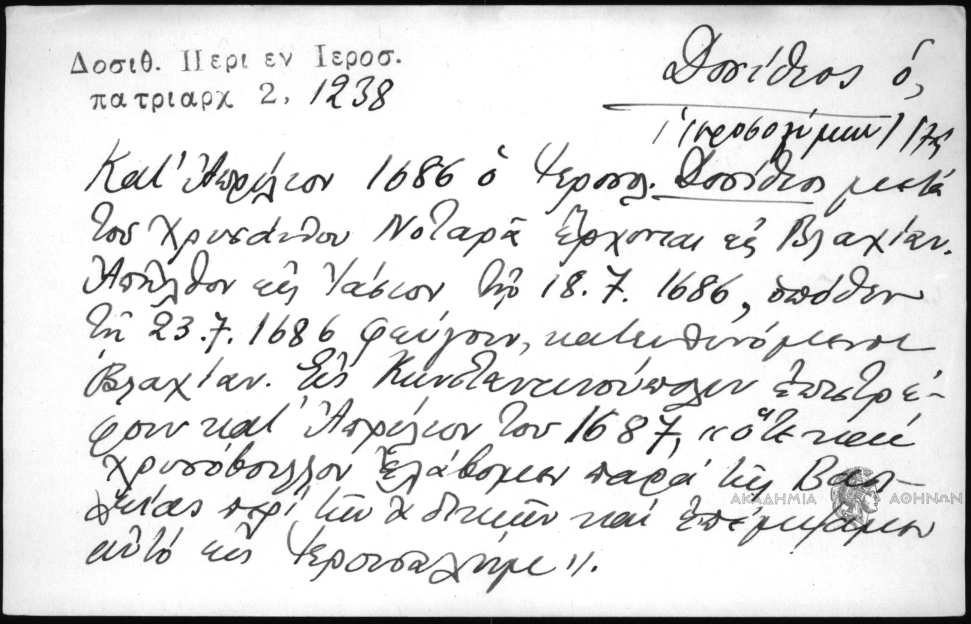 Δοσιθ. Περι εν Ιεροσ.
πατριαρχ 2, 1238
Δοσίθεος ὁ,
Ἱεροσολύμων
Κατ' Ἀπρίλιον 1686 ὁ Ἱεροσολ. Δοσίθεος μετὰ
τοῦ Χρυσάνθου Νοταρᾶ ἔρχονται εἰς Βλαχίαν.
Ἀπῆλθον εἰς Ἰάσιον τῇ 18.7.1686, ὁπόθεν
τῇ 23.7.1686 φεύγουν, κατευθυνόμενοι
Βλαχίαν. Εἰς Κωνσταντινούπολιν ἐπιστρέ-
φουν κατ' Ἀπρίλιον τοῦ 1687, "ὅτε καὶ
χρυσόβουλλον ἐλάβομεν παρὰ τῆς Βασι-
λείας περὶ τῶν καὶ ἐπέμψαμεν
αὐτὸ εἰς Ἱερουσαλήμ".
ΑΚΑΔΗΜΙΑ ΑΘΗΝΩΝ